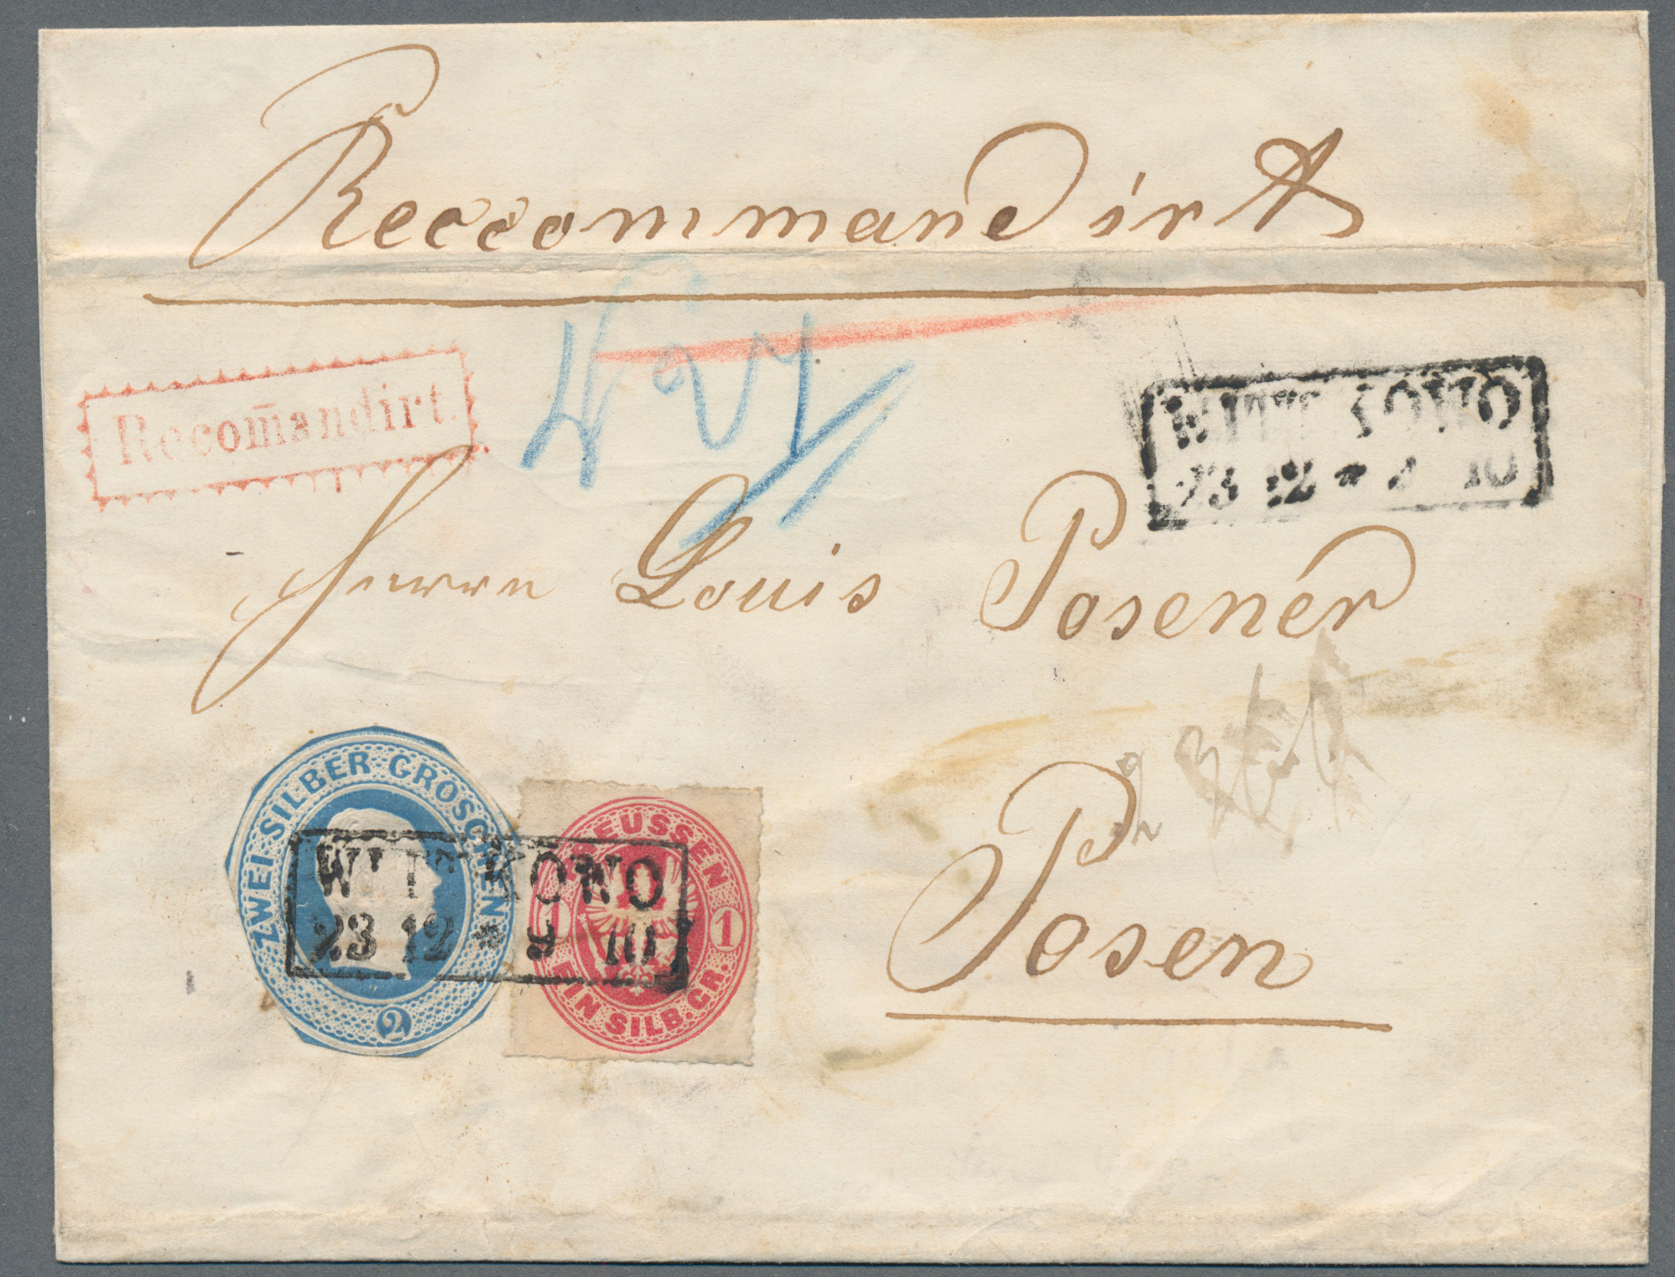 Reccommandirt
Recom̄andirt.
WITTKOWO
23 12 * 10
Herrn Louis Posener
ZWEI SILBER GROSCHEN
2
PREUSSEN
1 1
EIN SILB. GR.
WITTKOWO
23 12 * 9 10
Posen